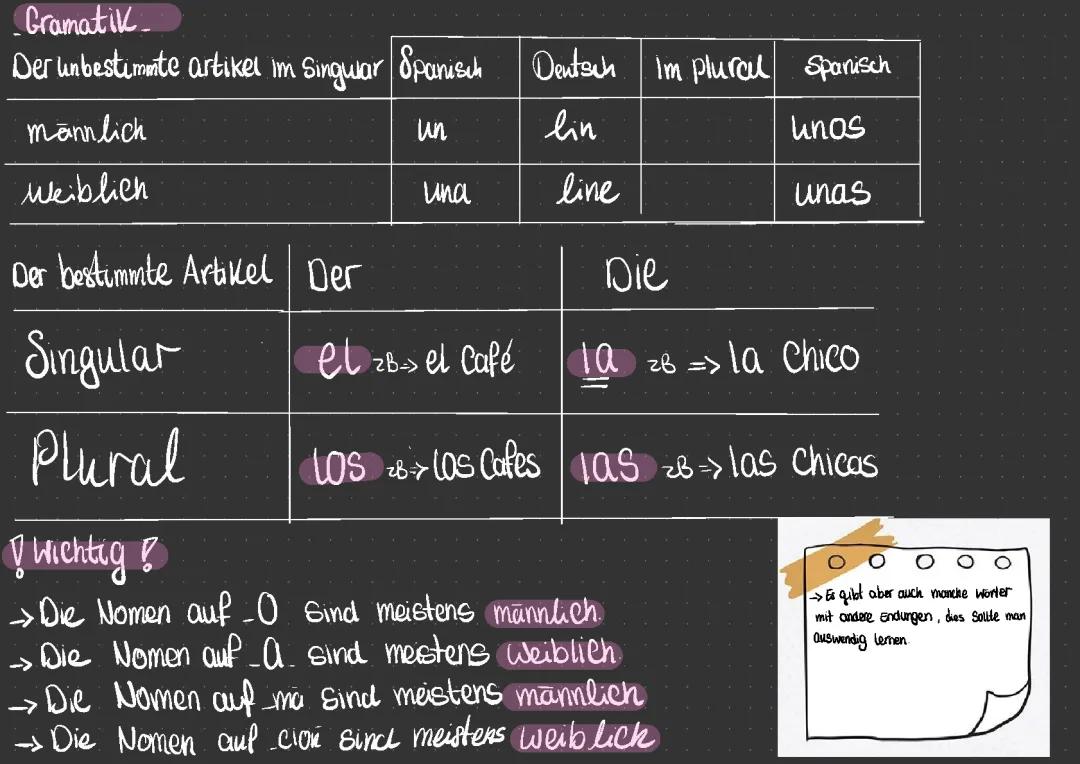 Gramatik
Der unbestimmte artikel im Singular Spanisch Deutsch im plural Spanisch
männlich un ein unos
weiblich una eine unas
Der bestimmte Artikel Der Die
Singular el zB => el Café la zB => la Chico
Plural los zB => los Cafes las zB => las Chicas
! Wichtig !
→ Die Nomen auf -O sind meistens männlich.
→ Die Nomen auf -a- sind meistens weiblich.
→ Die Nomen auf -ma sind meistens männlich
→ Die Nomen auf -ción sind meistens weiblick
→ Es gibt aber auch manche wörter
mit andere Endungen, dies sollte man
auswendig lernen.